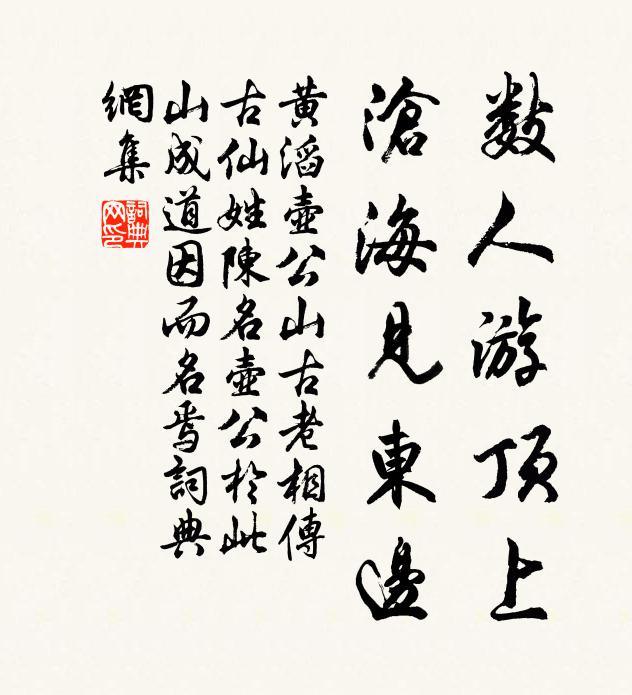 数人游顶上
滄海見東邊
黄滔壺公山古老相傳
古仙姓陳名壺公於此
山成道因而名焉詞典
網集
詞典
网印